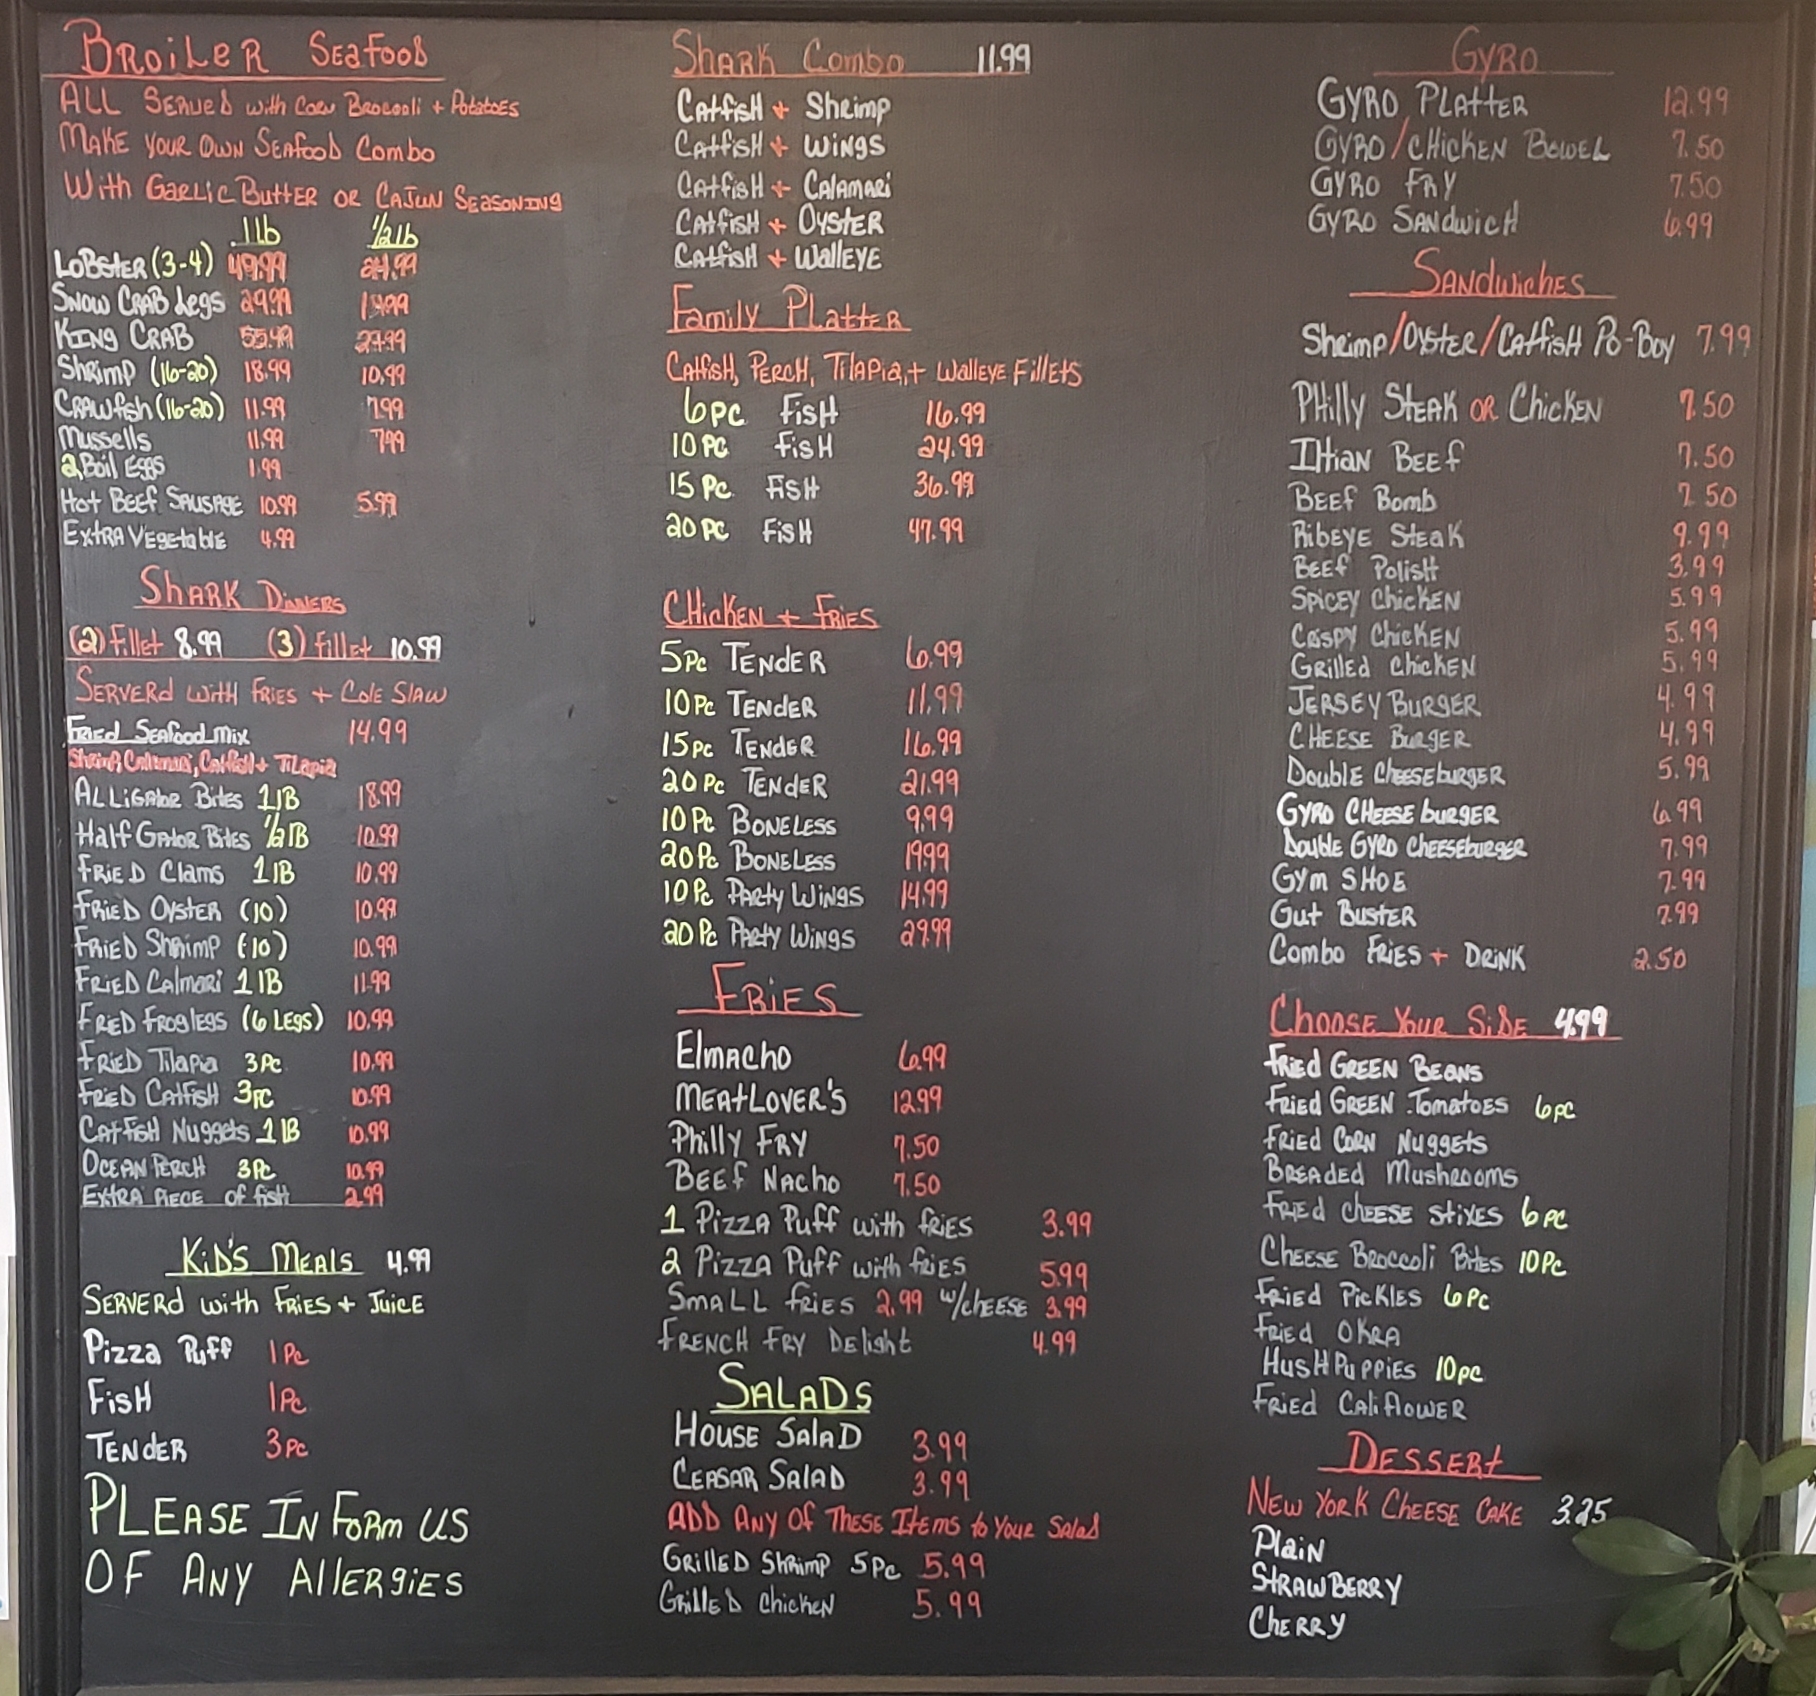 BROILER SEAFOOD
ALL SERVED with CORN BROCOOLI + POTATOES
MAKE YOUR OWN SEAFOOD COMBO
WITH GARLIC BUTTER OR CAJUN SEASONING
1lb 1/2lb
LOBSTER (3-4) 49.99 24.99
SNOW CRAB Legs 29.99
KING CRAB
SHRIMP (16-20) 18.99 10.99
CRAWfish (16-20) 11.99 7.99
Mussells 11.99 7.99
2 Boil EGGS 1.99
HOT BEEF SAUSAGE 10.99 5.99
EXTRA VEGETABLE 4.99
SHARK DINNERS
(2) fillet 8.99 (3) fillet 10.99
SERVERD WITH FRIES + COLE SLAW
FRIED SEAFOOD MIX 14.99
Shrimp, Calamari, Catfish + Tilapia
ALLIGATOR BITES 1 lB 18.99
Half GATOR BITES 1/2 lB 10.99
FRIED Clams 1 lB 10.99
FRIED OYSTER (10) 10.99
FRIED SHRIMP (10) 10.99
FRIED CALMARI 1 lB 11.99
FRIED FROGLEGS (6 LEGS) 10.99
FRIED Tilapia 3PC 10.99
FRIED CATFISH 3PC 10.99
CATFISH NUGGETS 1 lB 10.99
OCEAN PERCH 3PC 10.99
EXTRA PIECE OF fISH 2.99
KID'S MEALS 4.99
SERVERD with FRIES + JUICE
Pizza Puff 1 PC
FISH 1 PC
TENDER 3 PC
PLEASE INFORM US
OF ANY ALLERGIES
SHARK COMBO 11.99
CATFISH + SHRIMP
CATFISH + WINGS
CATFISH + CALAMARI
CATFISH + OYSTER
CATFISH + WALLEYE
FAMILY PLATTER
CATFISH, PERCH, TILAPIA, + WALLEYE FILLETS
6 PC FISH 16.99
10 PC FISH 24.99
15 PC FISH 36.99
20 PC FISH 47.99
CHICKEN + FRIES
5PC TENDER 6.99
10 PC TENDER 11.99
15 PC TENDER 16.99
20 PC TENDER 21.99
10 PC BONELESS 9.99
20 PC BONELESS 19.99
10 PC PARTY WINGS 14.99
20 PC PARTY WINGS 29.99
FRIES
ELMACHO 6.99
MEATLOVER'S 12.99
PHILLY FRY 7.50
BEEF NACHO 7.50
1 PIZZA PUFF with fRIES 3.99
2 PIZZA PUFF with fRIES 5.99
SMALL fRIES 2.99 w/CHEESE 3.99
FRENCH FRY DELIGHT 4.99
SALADS
HOUSE SALAD 3.99
CEASAR SALAD 3.99
ADD ANY OF THESE ITEMS to YOUR SALAD
GRILLED SHRIMP 5 PC 5.99
GRILLED CHICKEN 5.99
GYRO
GYRO PLATTER 12.99
GYRO/CHICKEN BOWEL 7.50
GYRO FRY 7.50
GYRO SANDWICH 6.99
SANDWICHES
SHRIMP/OYSTER/CATFISH PO-BOY 7.99
PHILLY STEAK OR CHICKEN 7.50
ILTIAN BEEF 7.50
BEEF BOMB 7.50
RIBEYE STEAK 9.99
BEEF POLISH 3.99
SPICEY CHICKEN 5.99
CRSPY CHICKEN 5.99
GRILLED CHICKEN 5.99
JERSEY BURGER 4.99
CHEESE BURGER 4.99
DOUBLE CHEESEBURGER 5.99
GYRO CHEESE BURGER 6.99
DOUBLE GYRO CHEESEBURGER 7.99
GYM SHOE 7.99
GUT BUSTER 7.99
COMBO FRIES + DRINK 2.50
CHOOSE YOUR SIDE 4.99
FRIED GREEN BEANS
FRIED GREEN TOMATOES 6 PC
FRIED CORN NUGGETS
BREADED MUSHROOMS
FRIED CHEESE STIXES 6 PC
CHEESE BROCCOLI BITES 10 PC
FRIED PICKLES 6 PC
FRIED OKRA
HUSHPUPPIES 10 PC
FRIED CALIFLOWER
DESSERT
NEW YORK CHEESE CAKE 3.25
PLAIN
STRAWBERRY
CHERRY